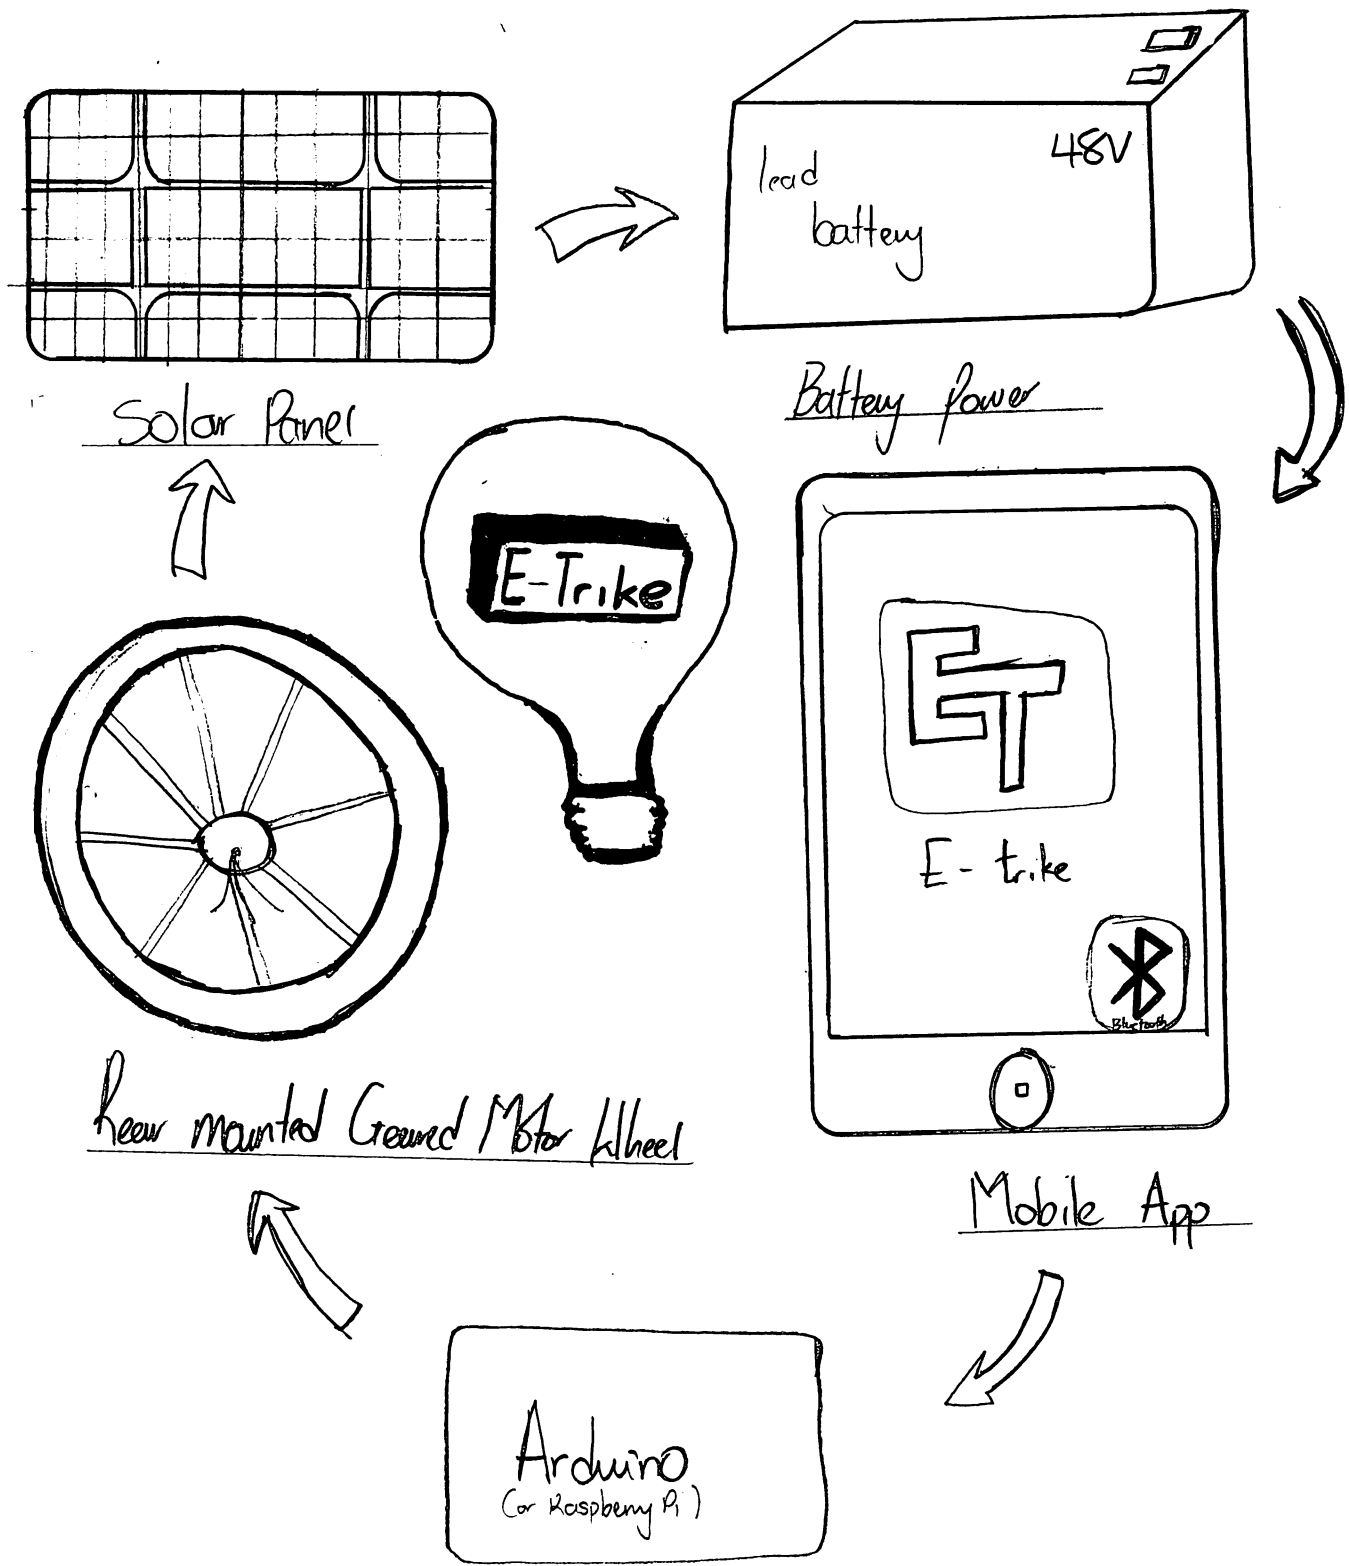 48V
lead
battery
Solar Panel
Battery Power
E-Trike
ET
E-trike
Bluetooth
Rear mounted Geared Motor Wheel
Mobile App
Arduino
(or Raspberry Pi)